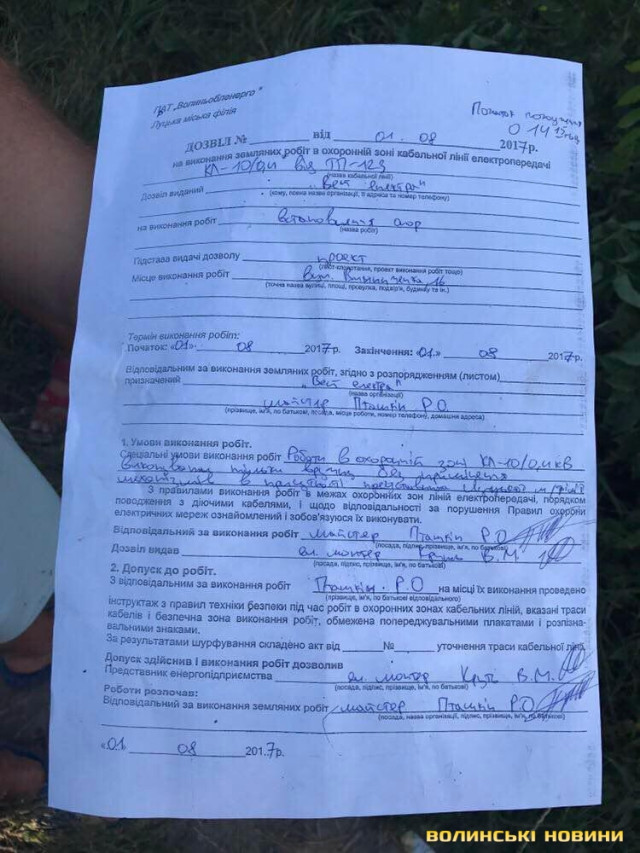 ПАТ „Волиньобленерго"
Луцька міська філія
Початок
О 14
ДОЗВІЛ № від 01. 08 2017р.
на виконання земляних робіт в охоронній зоні кабельної лінії електропередачі
КЛ-10/0,4 від ТП-123
(назва кабельної лінії)
Дозвіл виданий „Вест електро"
(кому, повна назва організації, її адреса та номер телефону)
на виконання робіт встановлення опор
(назва робіт)
Підстава видачі дозволу проект
(лист-клопотання, проект виконання робіт тощо)
Місце виконання робіт вул. Винниченка 16
(точна назва вулиці, площі, провулка, подвір'я, будинку та ін.)
Термін виконання робіт:
Початок: «01» 08 2017р. Закінчення: «01» 08 2017р.
Відповідальним за виконання земляних робіт, згідно з розпорядженням (листом)
призначений „Вест електро"
(назва організації)
майстер Пташкін Р.О
(прізвище, ім'я, по батькові, посада, місце роботи, номер телефону, домашня адреса)
1. Умови виконання робіт.
Спеціальні умови виконання робіт Роботи в охоронній зоні КЛ-10/0,4 кВ
виконувати тільки вручну без
механізмів в представника філії
З правилами виконання робіт в межах охоронних зон ліній електропередачі, порядком
поводження з діючими кабелями, і щодо відповідальності за порушення Правил охорони
електричних мереж ознайомлений і зобов'язуюся їх виконувати.
Відповідальний за виконання робіт майстер Пташкін Р.О
(посада, підпис, прізвище, ім'я, по батькові)
Дозвіл видав ел. монтер Круть В.М.
(посада, підпис, прізвище, ім'я, по батькові)
2. Допуск до робіт.
З відповідальним за виконання робіт Пташкін. Р.О на місці їх виконання проведено
(прізвище, ім'я, по батькові відповідального)
інструктаж з правил техніки безпеки під час робіт в охоронних зонах кабельних ліній, вказані траси
кабелів і безпечна зона виконання робіт, обмежена попереджувальними плакатами і розпізна-
вальними знаками.
За результатами шурфування складено акт від № уточнення траси кабельної лінії
Допуск здійснив і виконання робіт дозволив
Представник енергопідприємства ел. монтер Круть В.М.
(посада, підпис, прізвище, ім'я, по батькові)
Роботи розпочав:
Відповідальний за виконання земляних робіт майстер Пташкін Р.О
(посада, назва організації, підпис, прізвище, ім'я, по батькові)
«01 08 2017р.
ВОЛИНСЬКІ НОВИНИ